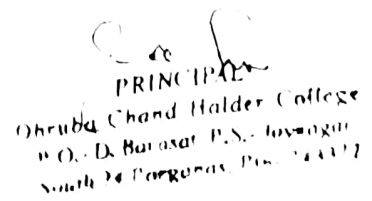 PRINCIPAL
Dhruba Chand Halder College
P.O.- D. Barasat P.S.- Joynagar
South 24 Parganas, Pin-